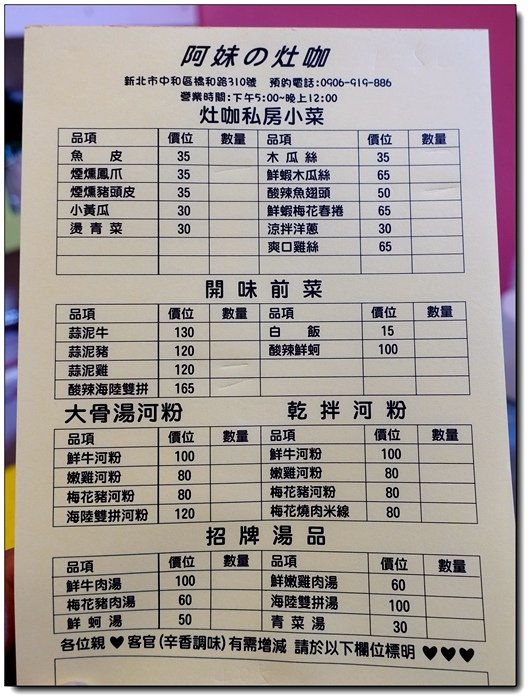 阿妹の灶咖
新北市中和區橋和路310號 預約電話:0906-919-886
營業時間:下午5:00~晚上12:00
灶咖私房小菜
品項 價位 數量 品項 價位 數量
魚 皮 35 木瓜絲 35
煙燻鳳爪 35 鮮蝦木瓜絲 65
煙燻豬頭皮 35 酸辣魚翅頭 50
小黃瓜 30 鮮蝦梅花春捲 65
燙青菜 30 涼拌洋蔥 30
爽口雞絲 65
開味前菜
品項 價位 數量 品項 價位 數量
蒜泥牛 130 白 飯 15
蒜泥豬 120 酸辣鮮蚵 100
蒜泥雞 120
酸辣海陸雙拼 165
大骨湯河粉 乾拌河粉
品項 價位 數量 品項 價位 數量
鮮牛河粉 100 鮮牛河粉 100
嫩雞河粉 80 嫩雞河粉 80
梅花豬河粉 80 梅花豬河粉 80
海陸雙拼河粉 120 梅花燒肉米線 80
招牌湯品
品項 價位 數量 品項 價位 數量
鮮牛肉湯 100 鮮嫩雞肉湯 60
梅花豬肉湯 60 海陸雙拼湯 100
鮮蚵湯 50 青菜湯 30
各位親♥客官(辛香調味)有需增減 請於以下欄位標明♥♥♥